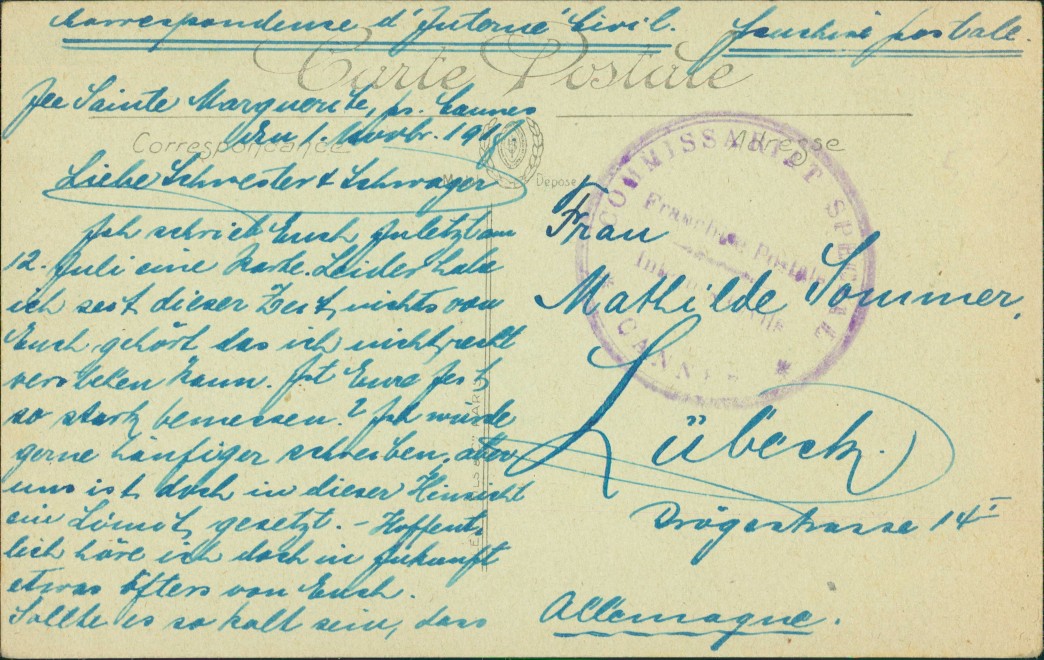 Correspondense d'Interné Civil. Franchise postale.
Carte Postale
Ile Sainte Marguerite, ps. Cannes
den 1. Novbr. 1917
Correspondance
Adresse
Déposé
Liebe Schwester & Schwager
Ich schrieb Euch zuletzt am
12. Juli eine Karte. Leider habe
ich seit dieser Zeit nichts von
Euch gehört das ich nicht recht
verstehen kann. Ist Eure Zeit
so stark bemessen? Ich würde
gerne häufiger schreiben, aber
uns ist doch in dieser Hinsicht
ein Limit gesetzt. - Hoffent
lich höre ich doch in Zukunft
etwas öfters von Euch.
Sollte es so kalt sein, dass
COMMISSARIAT SPECIAL
Franchise Postale
CANNES
Frau
Mathilde Sommer,
Lübeck.
Drögestrasse 14 I
Allemagne.
PARIS